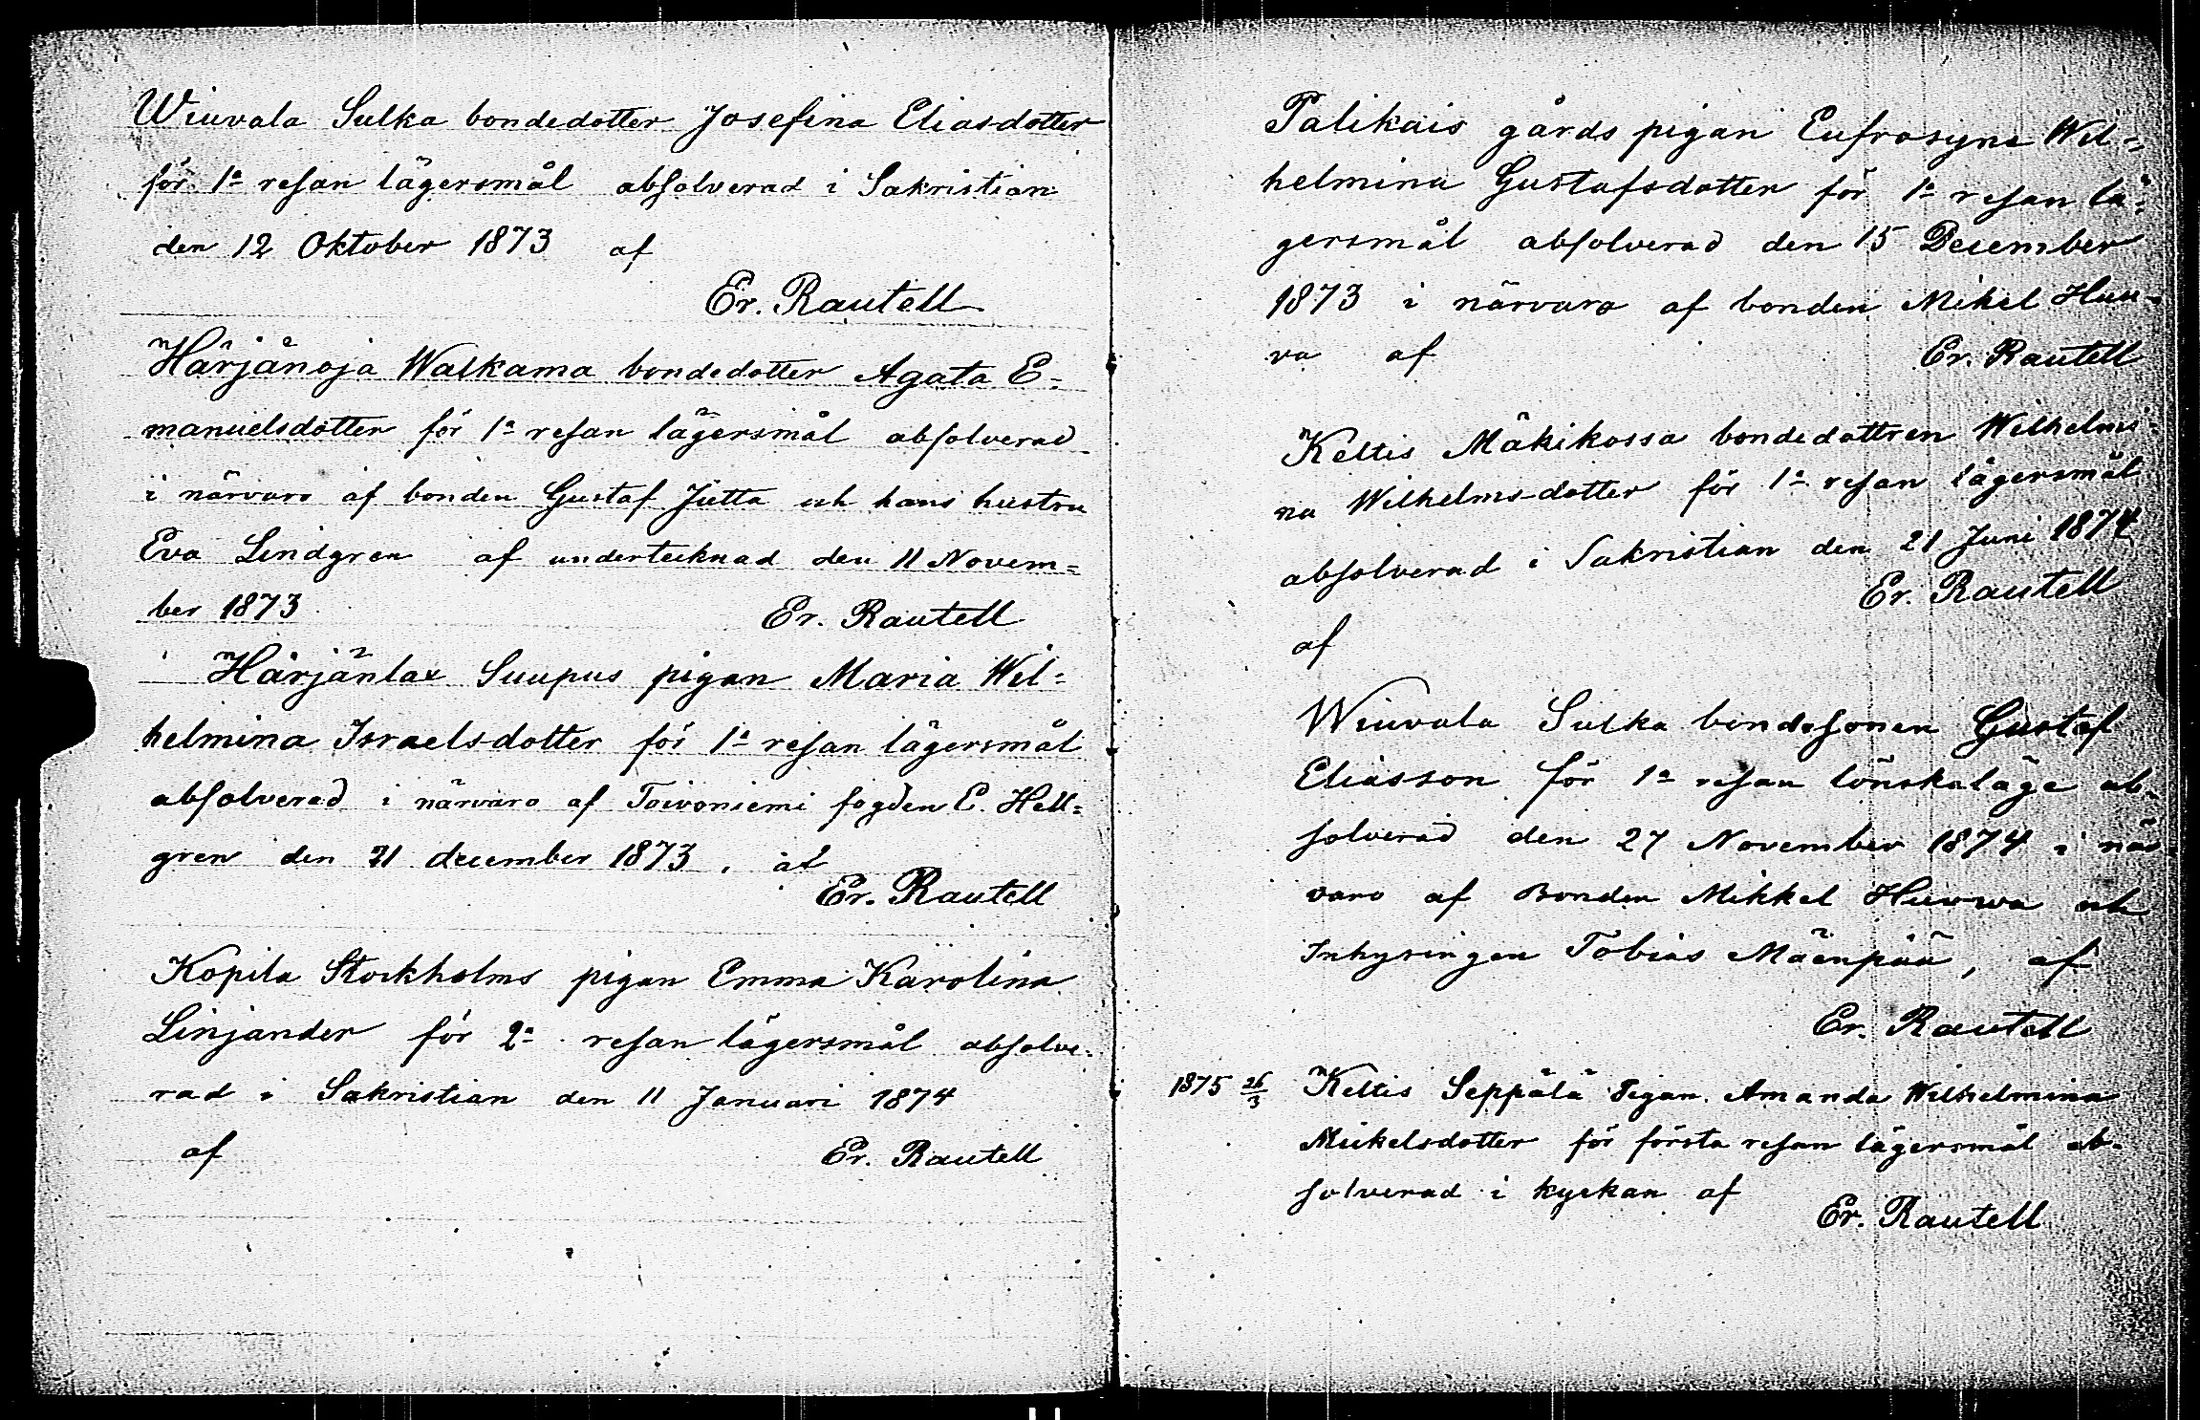 Wiuvala Sulka bondedotter Josefina Eliasdotter
för 1a resan lägersmål absolverad i Sakristian
den 12 Oktober 1873 af
Er. Rautell
Härjänoja Walkama bondedotter Agata E=
manuelsdotter för 1a resan lägersmål absolverad
i närvaro af bonden Gustaf Jutta och hans hustru
Eva Lindgren af undertecknad den 11 Novem=
ber 1873 Er. Rautell
Härjänlax Suupus pigan Maria Wil=
helmina Israelsdotter för 1a resan lägersmål
absolverad i närvaro af Toivoniemi fogden E. Hell=
gren den 21 december 1873. af
Er. Rautell
Kopila Stockholms pigan Emma Karolina
Linjander för 2a resan lägersmål absolve=
rad i Sakristian den 11 Januari 1874
af Er. Rautell
Palikais gårds pigan Eufrosyne Wil=
helmina Gustafsdotter för 1a resan lä=
gersmål absolverad den 15 December
1873 i närvaro af bonden Mikel Huu=
va af Er. Rautell
Keltis Mäkikossa bondedottren Wilhelmi=
na Wilhelmsdotter för 1a resan lägersmål
absolverad i Sakristian den 21 Juni 1874
Er. Rautell
af
Wiuvala Sulka bondesonen Gustaf
Eliasson för 1a resan lönskaläge ab=
solverad den 27 November 1874 i när
varo af Bonden Mikkel Huvwa och
Inhysingen Tobias Mäenpää, af
Er. Rautell
1875 26/3 Keltis Seppälä Pigan Amanda Wilhelmina
Mickelsdotter för första resan lägersmål ab=
solverad i kyrkan af
Er. Rautell